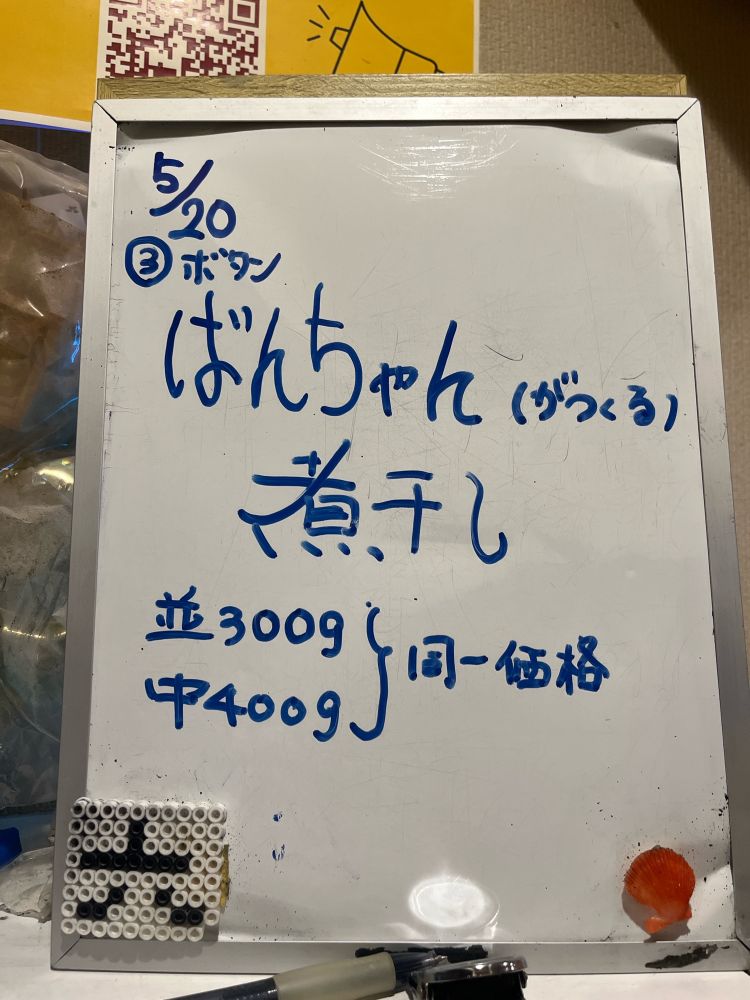 5/20
③ボタン
ばんちゃん(がつくる)
煮干し
並300g
中400g
}同一価格
六